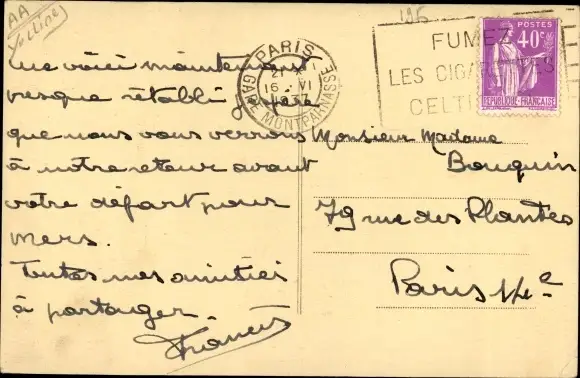 AA
Yvelines
Me voici maintenant
presque rétabli
que nous vous verrons
à notre retour avant
votre départ pour
Mers.
Toutes mes amitiés
à partager.
Francis
PARIS
21
16 VI
GARE MONTPARNASSE
FUMEZ
LES CIGARETTES
CELTI
POSTES
40c
REPUBLIQUE FRANÇAISE
Monsieur Madame
Bouquin
79 rue des Plantes
Paris 14e